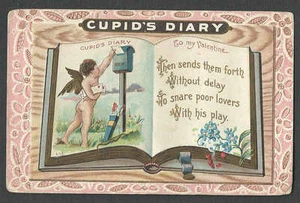 CUPID'S DIARY
CUPID'S DIARY
To my Valentine
Then sends them forth
Without delay
To snare poor lovers
With his play.